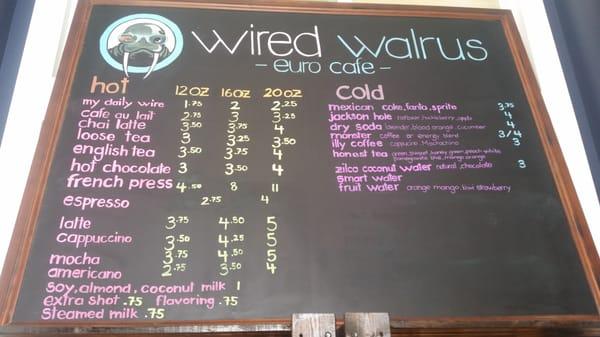 wired walrus
- euro cafe -
hot 12oz 16oz 20oz
my daily wire 1.75 2 2.25
cafe au lait 2.75 3 3.25
chai latte 3.50 3.75 4
loose tea 3 3.25 3.50
english tea 3.50 3.75 4
hot chocolate 3 3.50 4
french press 4.50 8 11
espresso 2.75 4
latte 3.75 4.50 5
cappuccino 3.50 4.25 5
mocha 3.75 4.50 5
americano 2.75 3.50 4
soy, almond, coconut milk 1
extra shot .75 flavoring .75
steamed milk .75
cold
mexican coke, fanta, sprite 3.75
jackson hole huckleberry, apple 4
dry soda lavender, blood orange, cucumber 4
monster coffee or energy blend 3/4
illy coffee cappucino, Mochaccino 3
honest tea green, honey green, peach white,
pomegranate blue, mango orange
zilco coconut water natural, chocolate 3
smart water
fruit water orange mango, kiwi strawberry